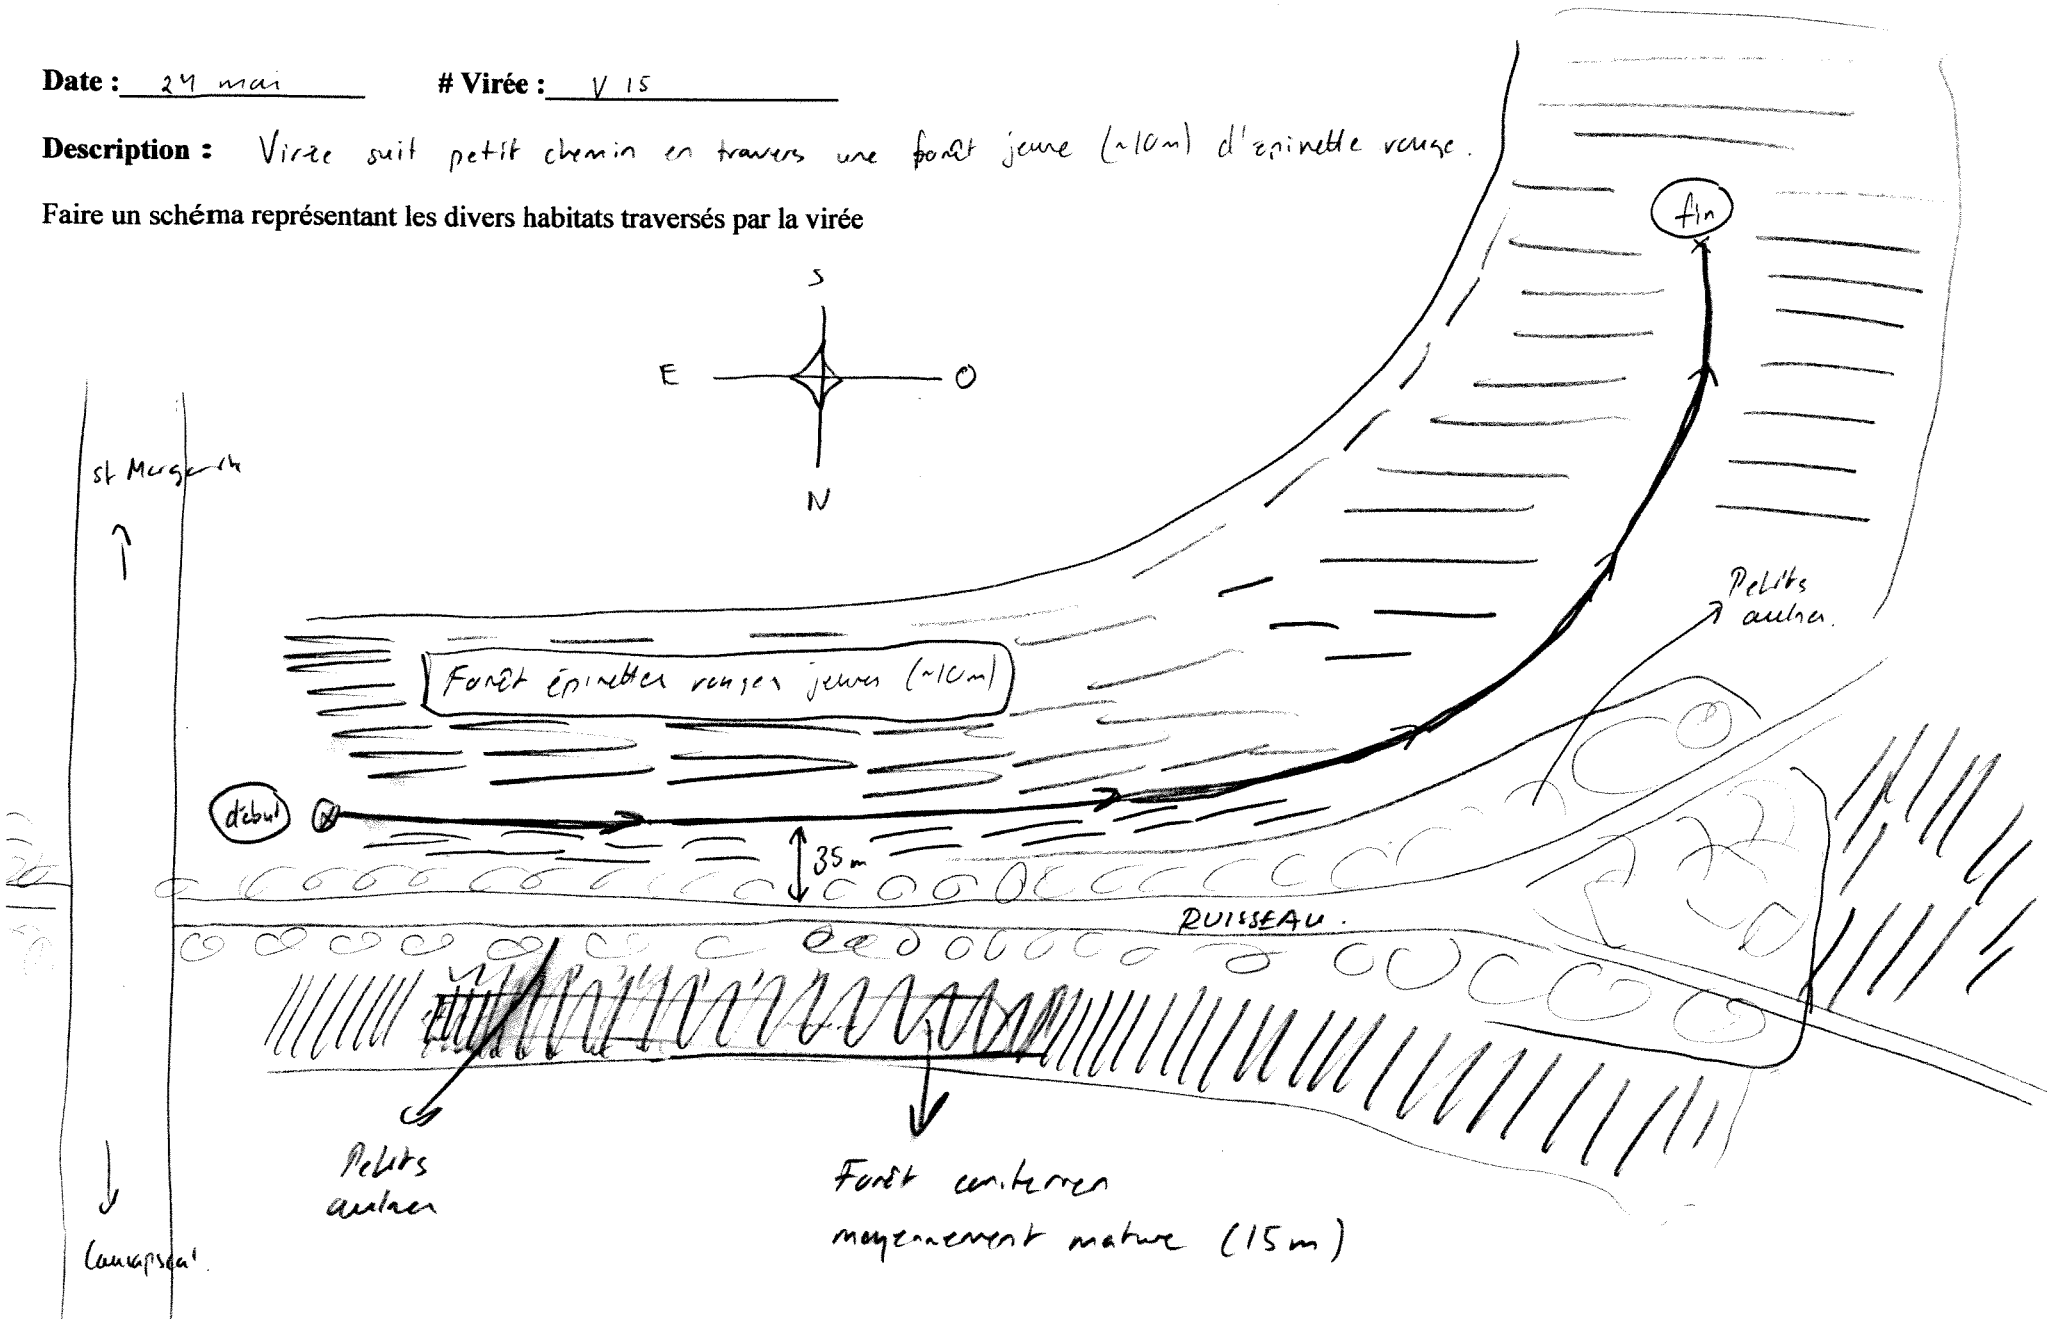 Date : 24 mai # Virée : V 15
Description : Virée suit petit chemin en travers une forêt jeune (~10m) d'épinette rouge.
Faire un schéma représentant les divers habitats traversés par la virée
fin
S
E O
N
st
Petits
aulnes.
Forêt épinettes rouges jeunes (~10m)
début
35 m
RUISSEAU.
Petits
aulnes
Forêt conifèrien
moyennement mature (15m)
Causapscal.